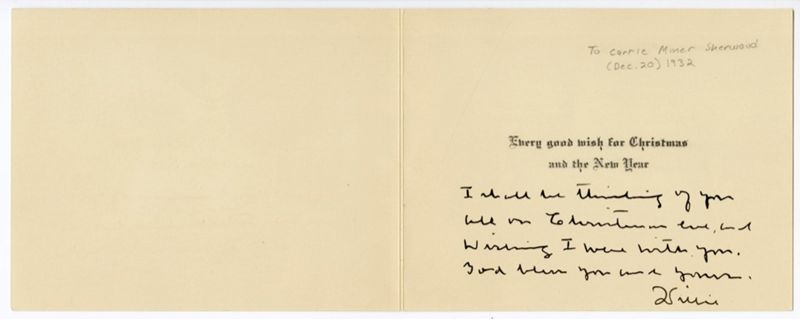 To Carrie Miner Sherwood
(Dec. 20) 1932
Every good wish for Christmas
and the New Year
I shall be thinking of you
all on Christmas eve, and
Wishing I were with you.
God bless you and yours.
Willie